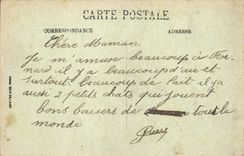 CARTE POSTALE
CORRESPONDANCE ADRESSE
Chère Maman
Je m'amuse beaucoup à
nard il y a beaucoup d' et
surtout beaucoup de lait il y a
aussi 2 petits chats qui jouent
bons baisers de tout le
monde